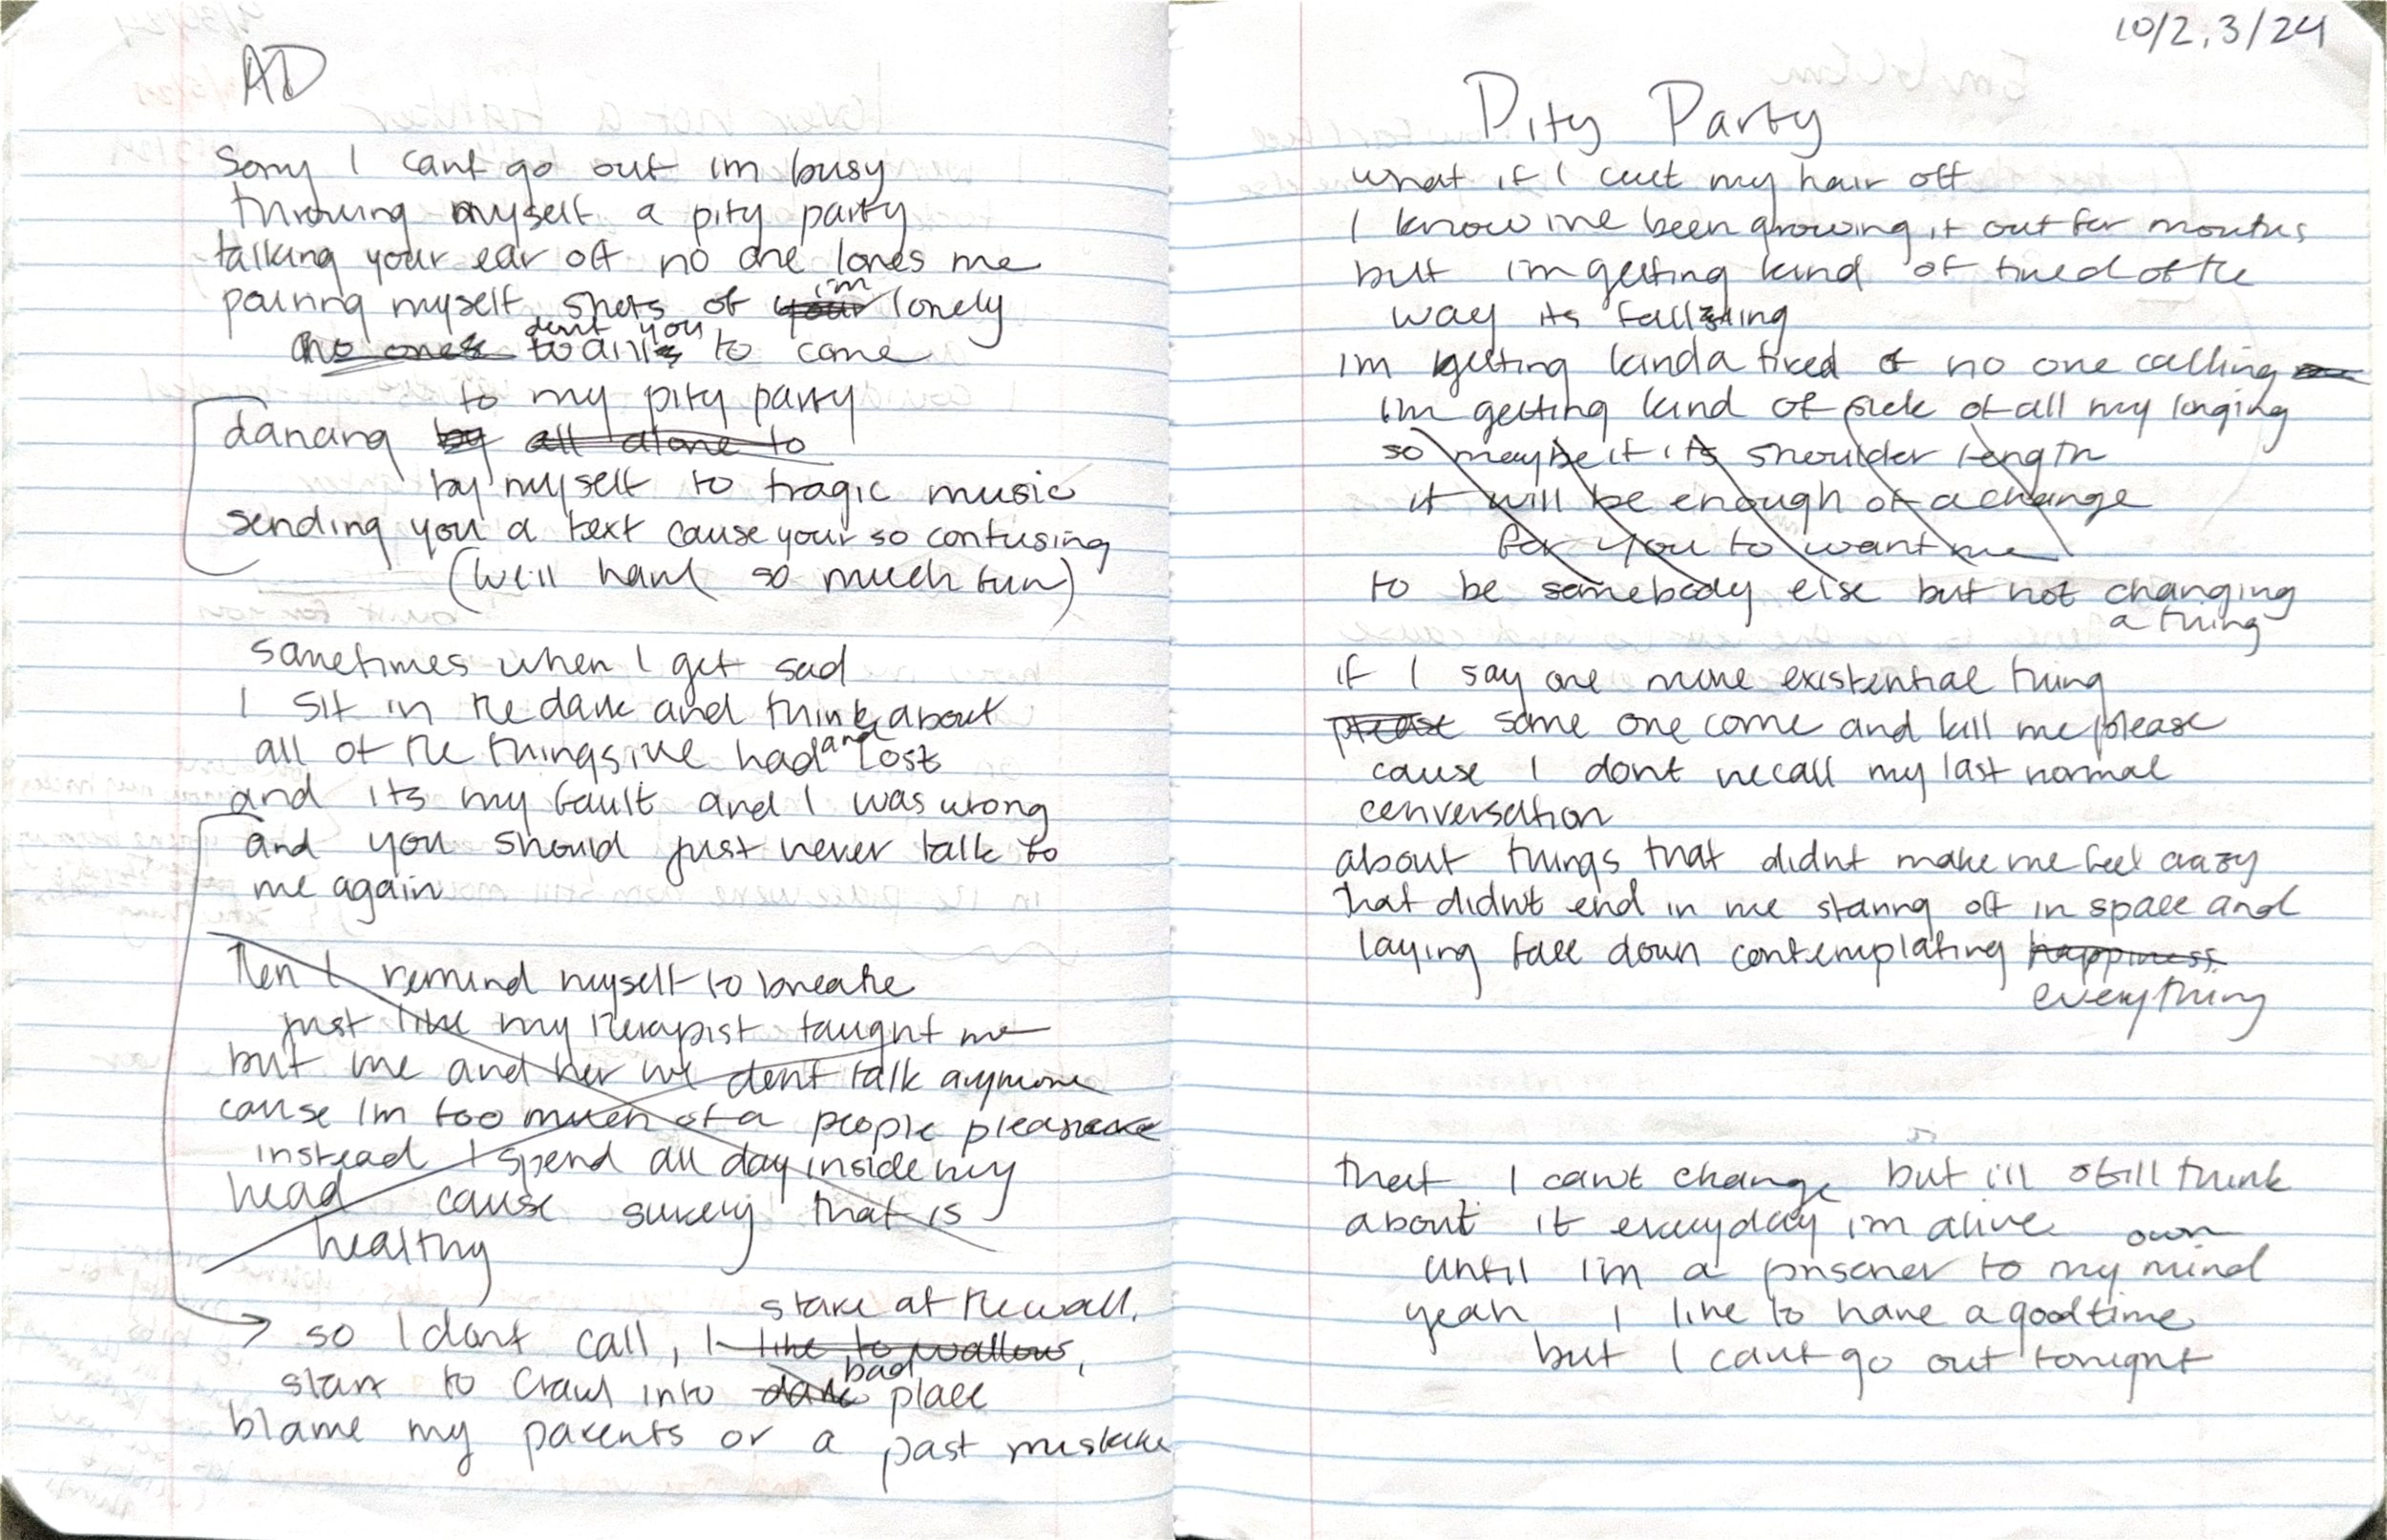 AD
Sorry I cant go out im busy
throwing myself a pity party
talking your ear off no one loves me
pouring myself shots of your im lonely
no ones dont you wants to come
to my pity party
dancing by all alone to
by myself to tragic music
sending you a text cause your so confusing
(we'll have so much fun)
sometimes when I get sad
I sit in the dark and think about
all of the things ive had and lost
and its my fault and I was wrong
and you should just never talk to
me again
then I remind myself to breathe
just like my therapist taught me
but me and her we dont talk anymore
cause Im too much of a people pleaser
instead I spend all day inside my
head cause surely that is
healthy
stare at the wall.
so I dont call, I like to wallow,
start to crawl into dark bad place
blame my parents or a past mistake
10/2,3/24
Pity Party
what if I cut my hair off
I know ive been growing it out for months
but im getting kind of tired of the
way its falling
im getting kinda tired of no one calling
im getting kind of sick of all my longing
so maybe if its shoulder length
it will be enough of a change
for you to want me
to be somebody else but not changing
a thing
if I say one more existential thing
please some one come and kill me please
cause I dont recall my last normal
conversation
about things that didnt make me feel crazy
that didn't end in me staring off in space and
laying face down contemplating happiness
everything
that I can't change but i'll still think
about it everyday im alive
until im a prisoner to my own mind
yeah I like to have a good time
but I cant go out tonight